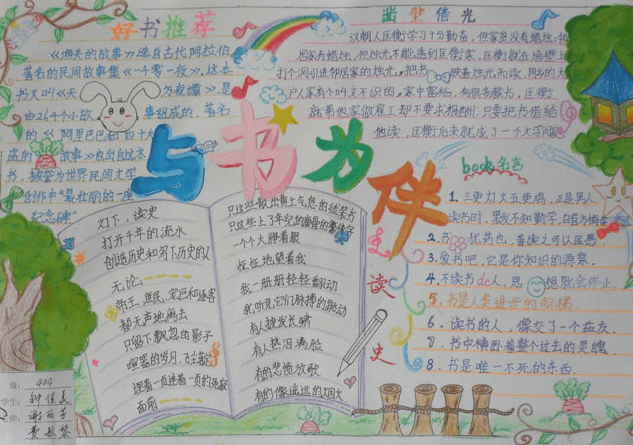 好书推荐
《渔夫的故事》选自古代阿拉伯
著名的民间故事集《一千零一夜》,这本
书又叫《天方夜谭》,是
由264个小故事组成的,著名
的《阿里巴巴和四十大
盗的故事》也出自这本
书,被誉为世界民间文学
创作中"最壮丽的一座
纪念碑"
凿壁借光
汉朝人匡衡学习十分勤奋,但家贫没有蜡烛,邻
居家有蜡烛,但烛光不能透到匡衡家,匡衡就在墙壁上
打个洞引进邻居家的烛光,把书映着烛光而读,同乡的大
户人家有个叫文不识的,家中富裕,有很多藏书,匡衡
就替他家做雇工却不要求报酬,只要把书借给
他读,匡衡后来就成了一个大学
与书为伴
灯下,读史
打开千年的流水
创造历史和写下历史的人
无论
帝王、庶民、宠臣和逐客
都无声地离去
只留下飘忽的影子
喧嚣的岁月,飞尘
踩着一页连着一页的
面前
只这些散出黄土气息的线装书
一个个睁着眼
怔怔地望着我
我一册册轻轻翻动
我听见它们脉搏的跳动
有人披发长啸
有人热泪满脸
有的悲愤放歌
有的像遥远的烟火
读史
book名言
1.三更灯火五更鸡,正是男人
读书时,黑发不知勤学早,白首方悔读书迟
2.书犹药也,善读之可以医愚
3.爱书吧,它是你知识的源泉
4.不读书de人,思想就会停止.
5.书是人类进步的阶梯.
6.读书的人,像交了一个益友.
7.书中横卧着整个过去的灵魂.
8.书是唯一不死的东西.
级:404
学生:钟佳
师:谢